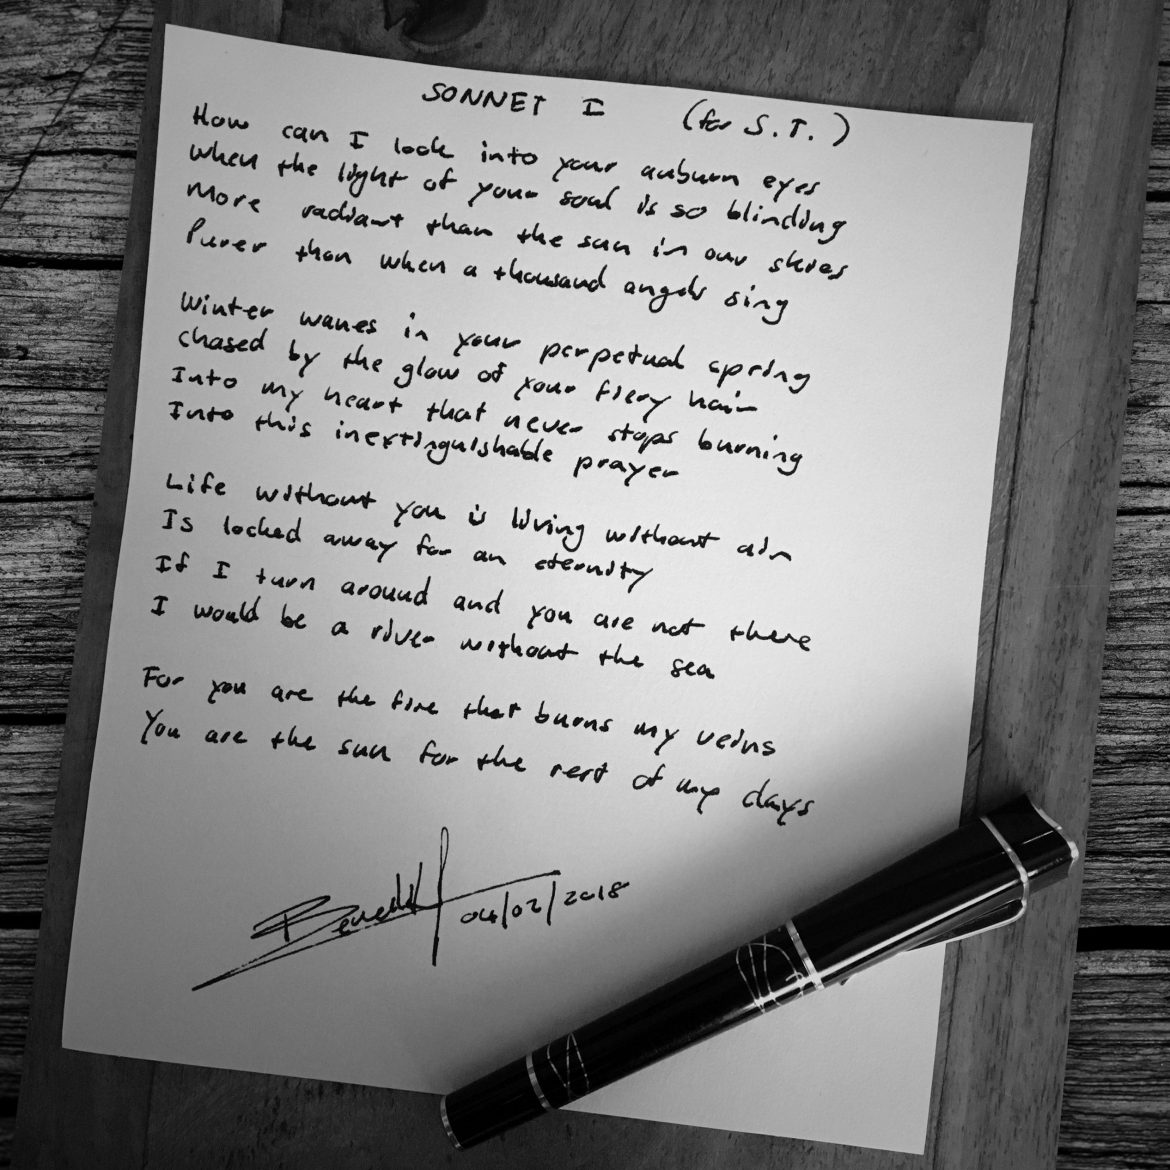 SONNET I (for S.T.)
How can I look into your auburn eyes
When the light of your soul is so blinding
More radiant than the sun in our skies
Purer than when a thousand angels sing
Winter wanes in your perpetual spring
Chased by the glow of your fiery hair
Into my heart that never stops burning
Into this inextinguishable prayer
Life without you is living without air
Is locked away for an eternity
If I turn around and you are not there
I would be a river without the sea
For you are the fire that burns my veins
You are the sun for the rest of my days
Benedikt 04/02/2018